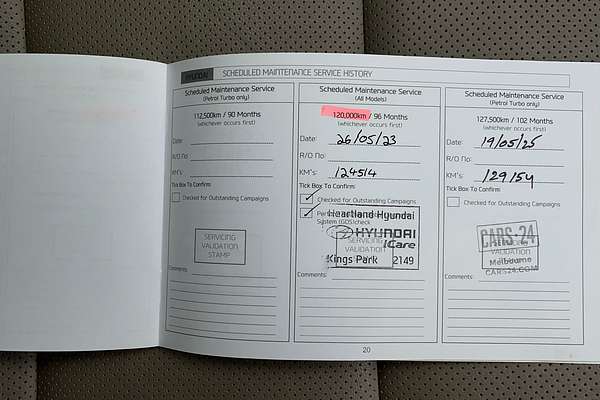 HYUNDAI SCHEDULED MAINTENANCE SERVICE HISTORY
Scheduled Maintenance Service
(Petrol Turbo only)
112,500km / 90 Months
(whichever occurs first)
Date:
R/O No:
KM's:
Tick Box To Confirm:
Checked for Outstanding Campaigns
SERVICING
VALIDATION
STAMP
Comments:
Scheduled Maintenance Service
(All Models)
120,000km / 96 Months
(whichever occurs first)
Date: 26/05/23
R/O No:
KM's: 124514
Tick Box To Confirm:
Checked for Outstanding Campaigns
System (GDS)check
Heartland Hyundai
HYUNDAI
iCare
SERVICING
VALIDATION
Kings Park 2149
Comments:
Scheduled Maintenance Service
(Petrol Turbo only)
127,500km / 102 Months
(whichever occurs first)
Date: 19/05/25
R/O No:
KM's: 129154
Tick Box To Confirm:
Checked for Outstanding Campaigns
CARS:24
VALIDATION
Melbourne
CARS24.COM
Comments:
20